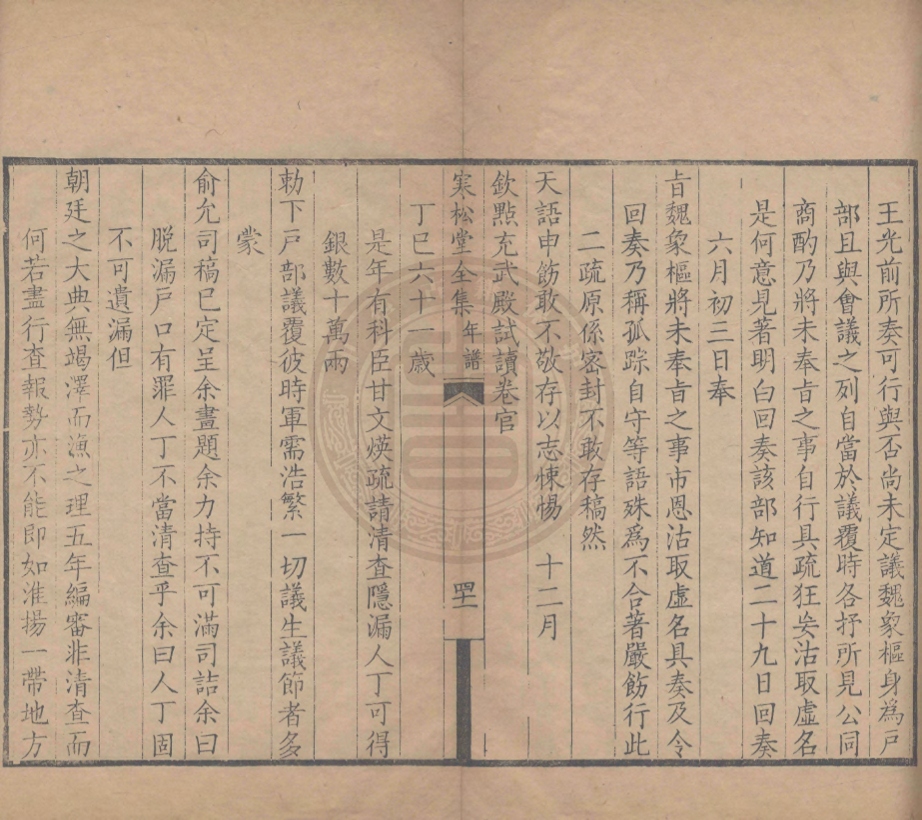 王光前所奏可行與否尚未定議魏象樞身爲戸
部且與會議之列自當於議覆時各抒所見公同
商酌乃將未奉㫖之事自行具疏狂妄沽取虛名
是何意見著明白回奏該部知道二十九日回奏
六月初三日奉
㫖魏象樞將未奉㫖之事市恩沽取虛名具奏及令
回奏乃稱孤踪自守等語殊爲不合著嚴飭行此
二疏原係密封不敢存稿然
天語申飭敢不敬存以志悚惕　十二月
欽點充武殿試讀卷官
寒松堂全集 年譜 四二
丁巳六十一歲
是年有科臣甘文焌疏請清查隱漏人丁可得
銀數十萬兩
勅下戸部議覆彼時軍需浩繁一切議生議節者多
蒙
俞允司稿已定呈余畫題余力持不可滿司詰余曰
脫漏戸口有罪人丁不當清查乎余曰人丁固
不可遺漏但
朝廷之大典無竭澤而漁之理五年編審非清查而
何若盡行查報勢亦不能即如淮揚一帶地方